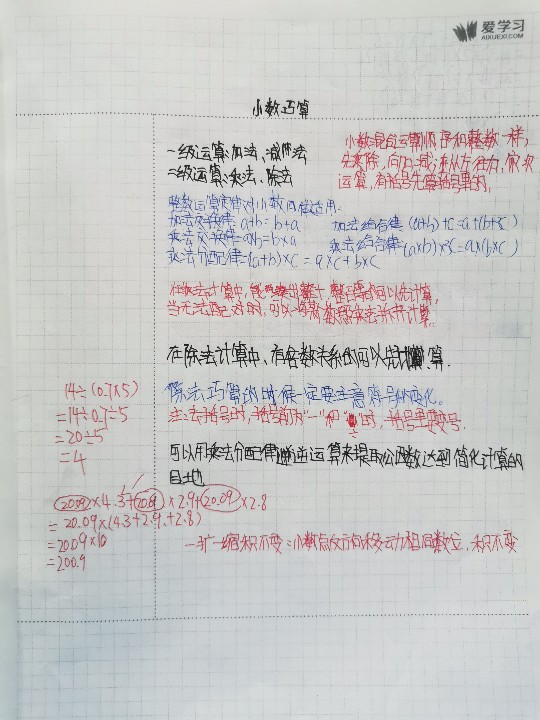 爱学习
AIXUEXI.COM
小数巧算
一级运算:加法、减法
二级运算:乘法、除法
小数混合运算顺序和整数一样,
先乘除,向加减;再从左往右,依次
运算,有括号先算括号里的。
整数运算定律对小数同样适用:
加法交换律:a+b=b+a
加法结合律(a+b)+c=a+(b+c)
乘法交换律:a×b=b×a
乘法结合律(a×b)×c=a×(b×c)
乘法分配律=(a+b)×c=a×c+b×c
在乘法计算中,能
的可以先计算,
当无法配对时,可以
计算。
在除法计算中,有倍数关系的可以先计算.
除法巧算的时候一定要注意符号的变化.
注:去括号时,括号前为"一"和"÷"时,括号里要变号.
可以用乘法分配律逆运算来提取公因数达到简化计算的
目地
一扩一缩积不变:小数点反方向移动相同数位,积不变
14÷(0.7×5)
=14÷0.7÷5
=20÷5
=4
20.09×4.3+20.09×2.9+20.09×2.8
=20.09×(4.3+2.9+2.8)
=20.09×10
=200.9